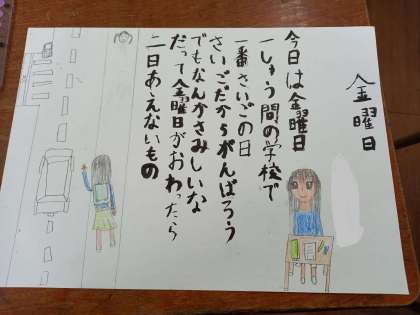 金曜日
今日は金曜日
一しゅう間の学校で
一番さいごの日
さいごだからがんばろう
でもなんかさみしいな
だって金曜日がおわったら
二日あえないもの